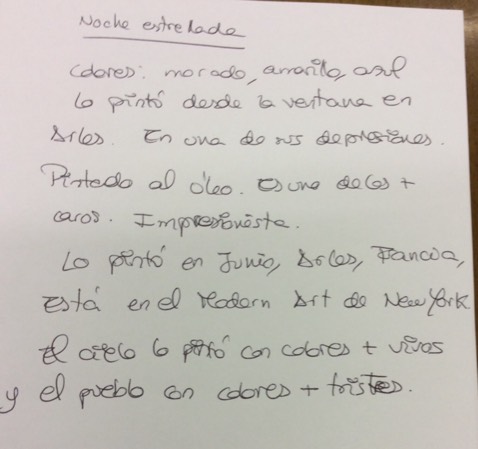 Noche estrelada
Colores: morado, amarillo, asul
Lo pintó desde la ventana en
Arles. En una de sus depresiones.
Pintado al óleo. Es uno de los +
caros. Impresionista.
Lo pintó en Junio, Arles, Francia,
Está en el Modern Art de New York
El cielo lo pintó con colores + vivos
y el pueblo con colores + tristes.